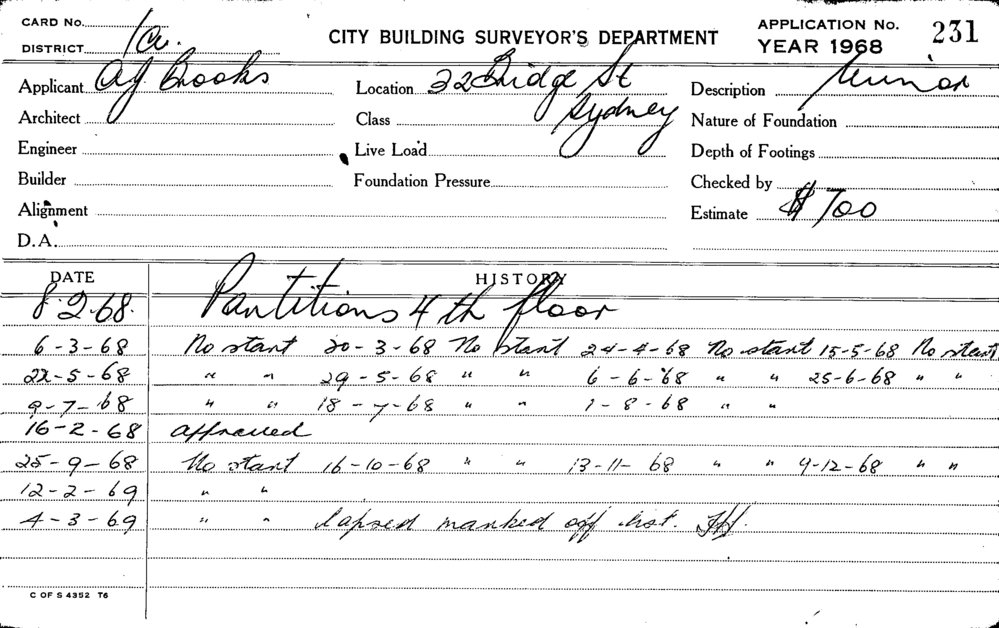 CARD No.
DISTRICT 1a.
CITY BUILDING SURVEYOR'S DEPARTMENT
APPLICATION No. 231
YEAR 1968
Applicant A J Brooks
Location 32 Bridge St
Sydney
Description Minor
Architect
Class
Nature of Foundation
Engineer
Live Load
Depth of Footings
Builder
Foundation Pressure
Checked by
Alignment
Estimate $ 700
D.A.
DATE HISTORY
8.2.68. Partitions 4th floor
6-3-68 No start 20-3-68 No start 24-4-68 No start 15-5-68 No start
22-5-68 " " 29-5-68 " " 6-6-68 " " 25-6-68 " "
9-7-68 " " 18-7-68 " " 1-8-68 " "
16-2-68 approved
25-9-68 No start 16-10-68 " " 13-11-68 " " 9-12-68 " "
12-2-69 " "
4-3-69 " " lapsed marked off list.
C OF S 4352 T6